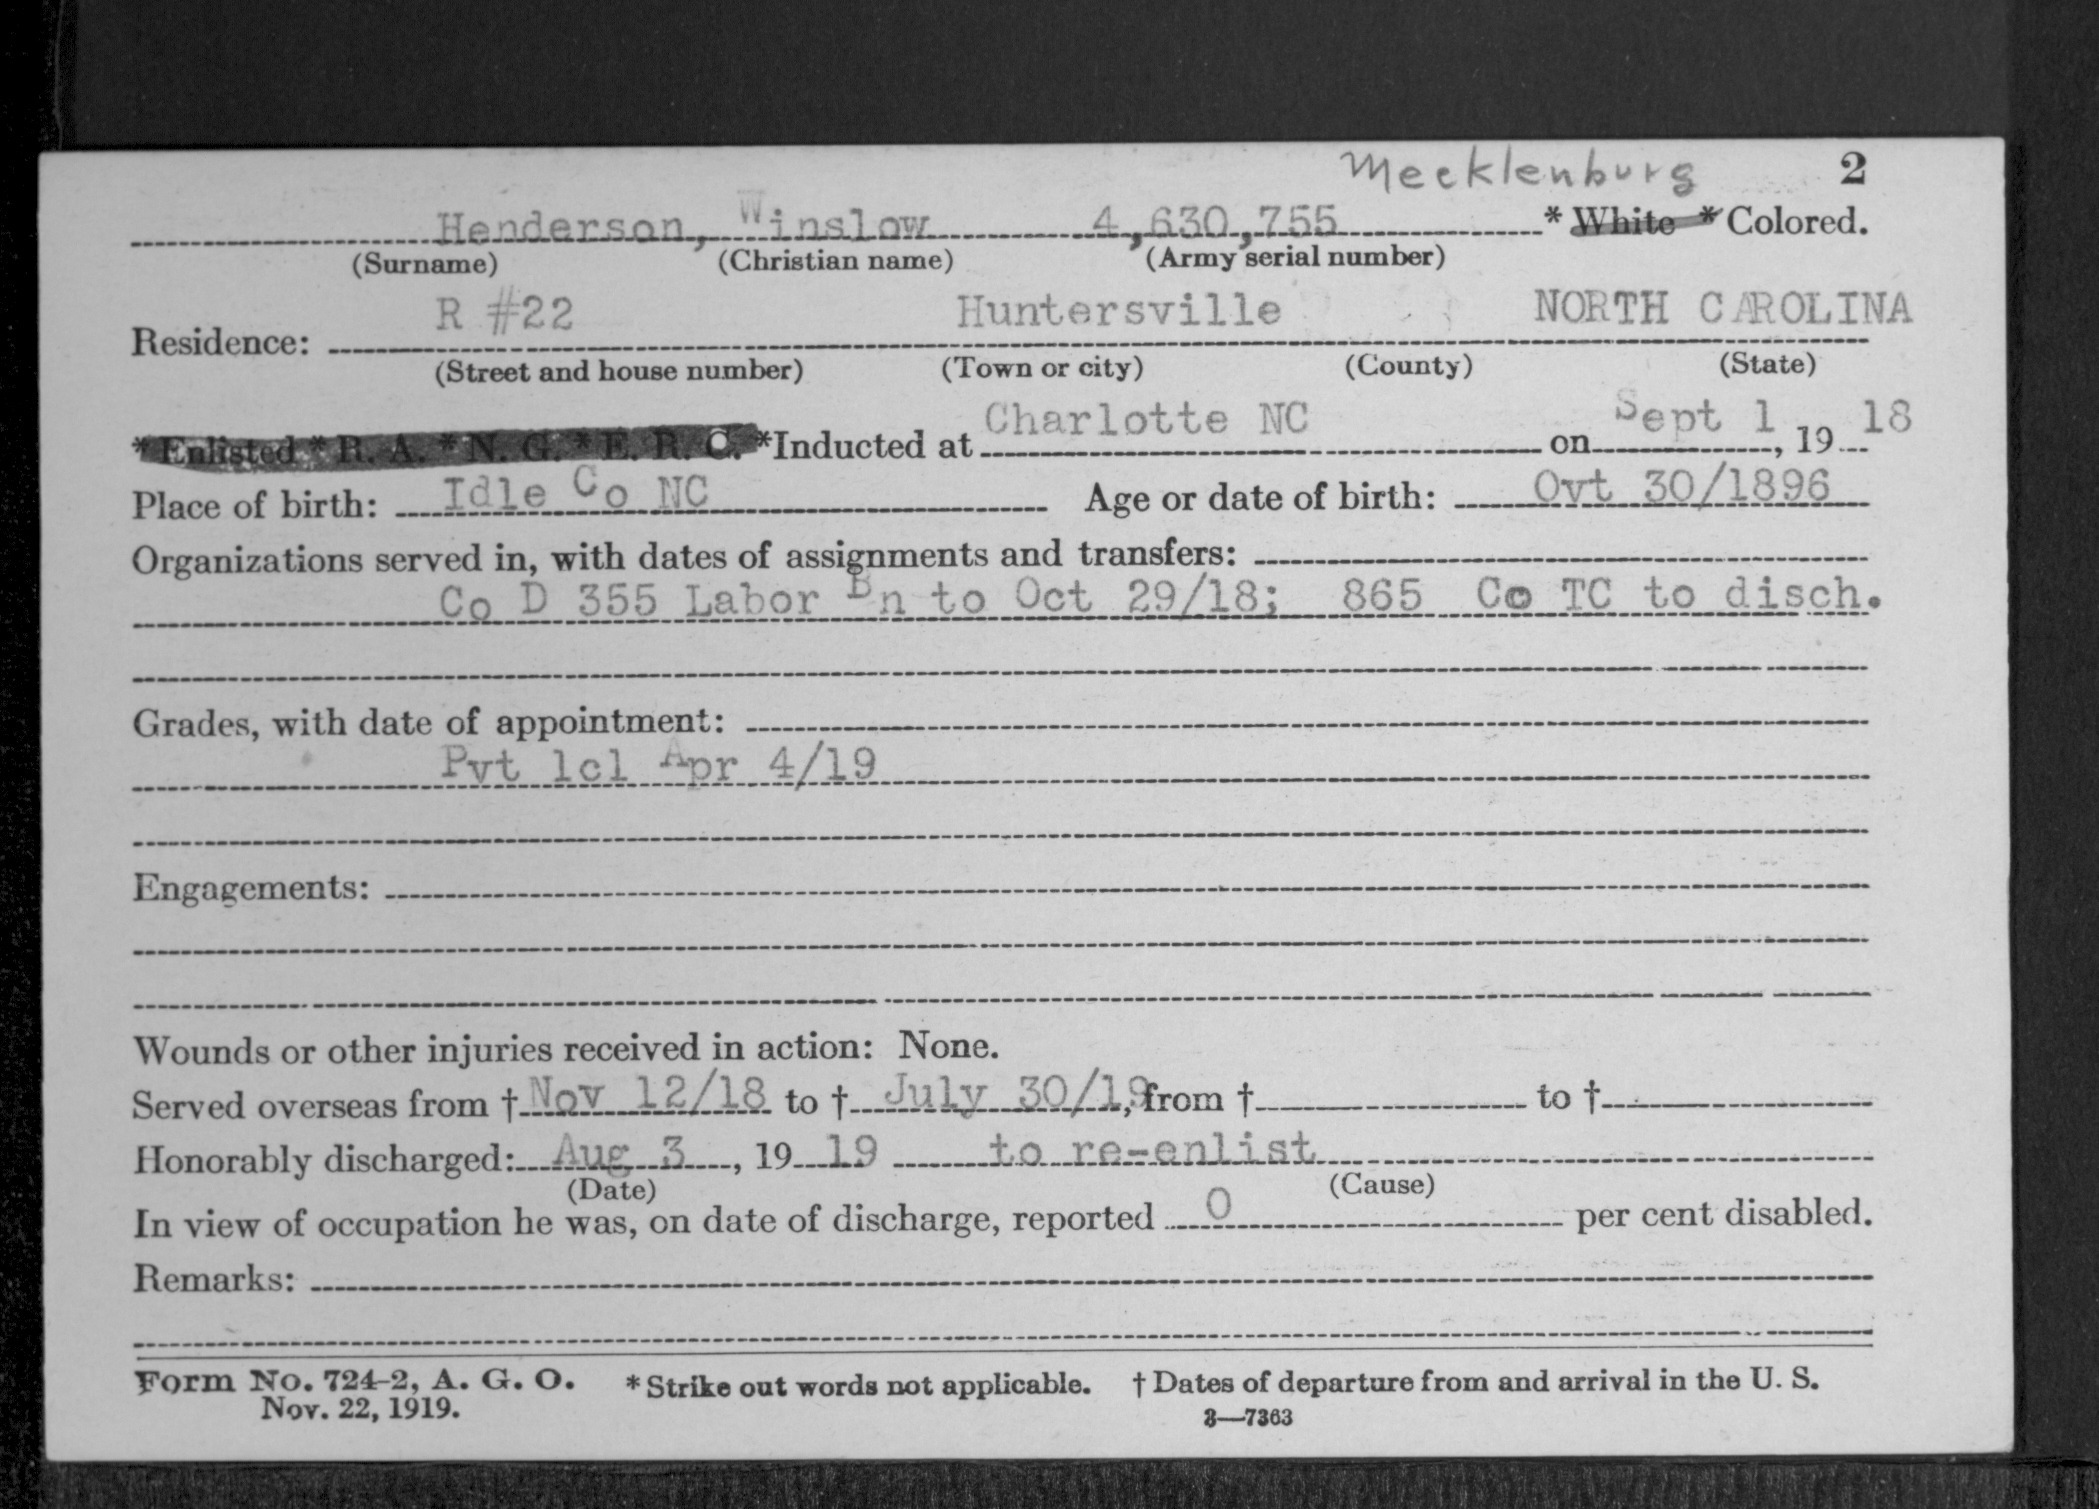 Mecklenburg 2
Henderson, Winslow 4,630,755 * White * Colored.
(Surname) (Christian name) (Army serial number)
R #22 Huntersville NORTH CAROLINA
Residence:
(Street and house number) (Town or city) (County) (State)
* Enlisted * R. A. * N. G. * E. R. C. *Inducted at Charlotte NC on Sept 1, 19 18
Place of birth: Idle Co NC Age or date of birth: Ovt 30/1896
Organizations served in, with dates of assignments and transfers:
Co D 355 Labor Bn to Oct 29/18; 865 Co TC to disch.
Grades, with date of appointment:
Pvt 1cl Apr 4/19
Engagements:
Wounds or other injuries received in action: None.
Served overseas from † Nov 12/18 to † July 30/19, from † to †
Honorably discharged: Aug 3, 19 19 to re-enlist
(Date) (Cause)
In view of occupation he was, on date of discharge, reported 0 per cent disabled.
Remarks:
Form No. 724-2, A. G. O. * Strike out words not applicable. † Dates of departure from and arrival in the U. S.
Nov. 22, 1919. 3—7363